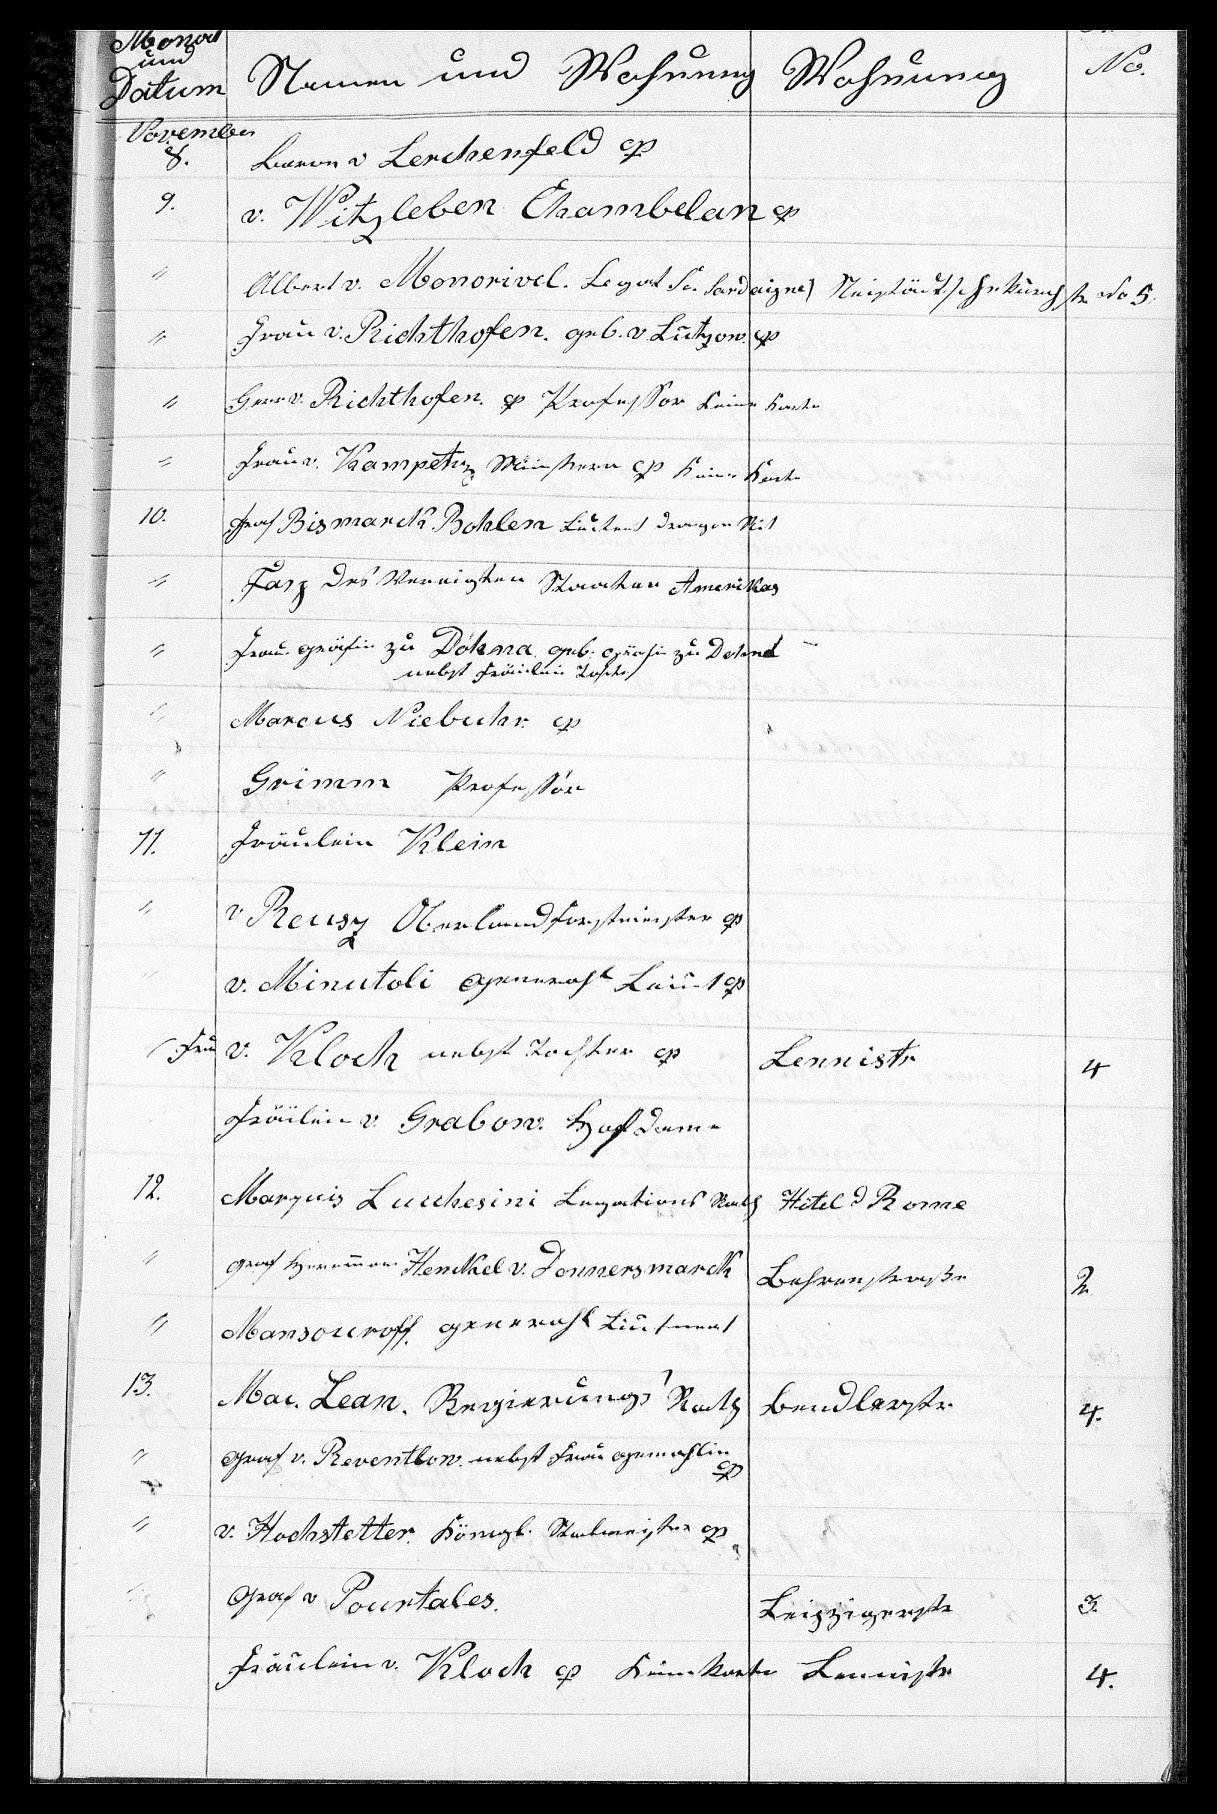 Monat
und
Datum Namen und Wohnung Wohnung No.
November
8. Baron v Lerchenfeld cp
9. v. Witzleben Chambelan cp
" Albert v. Monorivel. Legat Sardaigne) Neustädtsche Kirchstr No 5.
" Frau v. Richthofen. geb. v Lützow. cp
" Herr v. Richthofen. cp Professor Keine Karte
" Frau v. Kampetz, Ministern cp Keine Karte
10. Graf Bismarck Bohlen Lieutent Dragon Rgt
" Fay des Vereinigten Staaten Amerikas
" Frau gräfin zu Dohna geb. gräfin zu Dohna
nebst Fräulein Tochter
" Marcus Niebuhr. cp
" Grimm Professor
11. Fräulein Klein
" v Reusz Oberlandforstmeister cp
" v. Minutoli General Leut cp
Frau v. Kloch nebst Tochter cp Lennistr 4
Fräulein v. Grabow. Hof Dame
12. Marquis Lucchesini Legations Rath Hotel d Rome
" graf Hermann Henckel v. Donnersmarck Behrenstraße 2
" Mansouroff. general Lieutnent
13. Mac. Lean. Regierungs Rath Bendlerstr. 4.
" graf v. Reventlow. nebst Frau gemahlin
cp
" v. Hochstetter. Königl. Stalmeister cp
" Graf v Pourtales. Leipzigerstr 3.
Fräulein v. Kloch cp Keine Karte Lennistr 4.